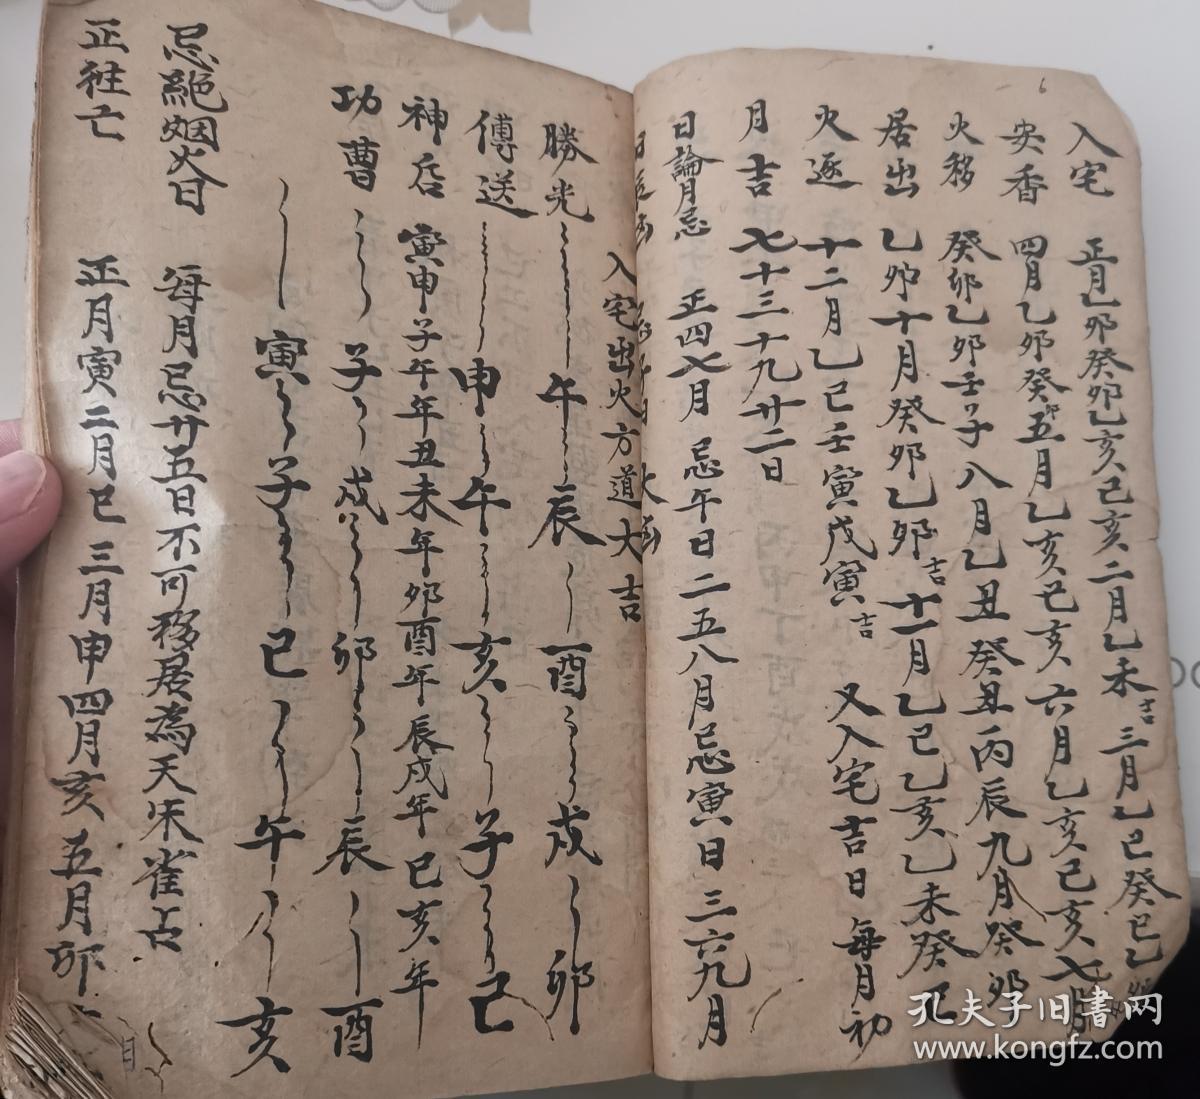 6
入宅 正月乙卯癸卯乙亥己亥二月乙未吉三月乙巳癸巳乙卯
安香 四月乙卯癸卯五月乙亥己亥六月乙亥己亥七月
火移 癸卯乙卯壬子八月乙丑癸丑丙辰九月癸卯
居出 乙卯十月癸卯乙卯吉十一月乙巳乙亥乙未癸巳
火逐 十二月乙巳壬寅戊寅吉 又入宅吉日每月初
月吉 七十三十九廿二日
日論月忌 正四七月忌午日二五八月忌寅日三六九月
入宅出火方道大吉
勝光 午 辰 酉 戌 卯
傳送 申 午 亥 子 己
神后 寅申子午年丑未年卯酉年辰戌年巳亥年
功曹 子 戌 卯 辰 酉
寅 子 巳 午 亥
忌絕烟火日 每月忌廿五日不可移居為天朱雀占
正往亡 正月寅二月巳三月申四月亥五月卯
孔夫子旧书网
www.kongfz.com